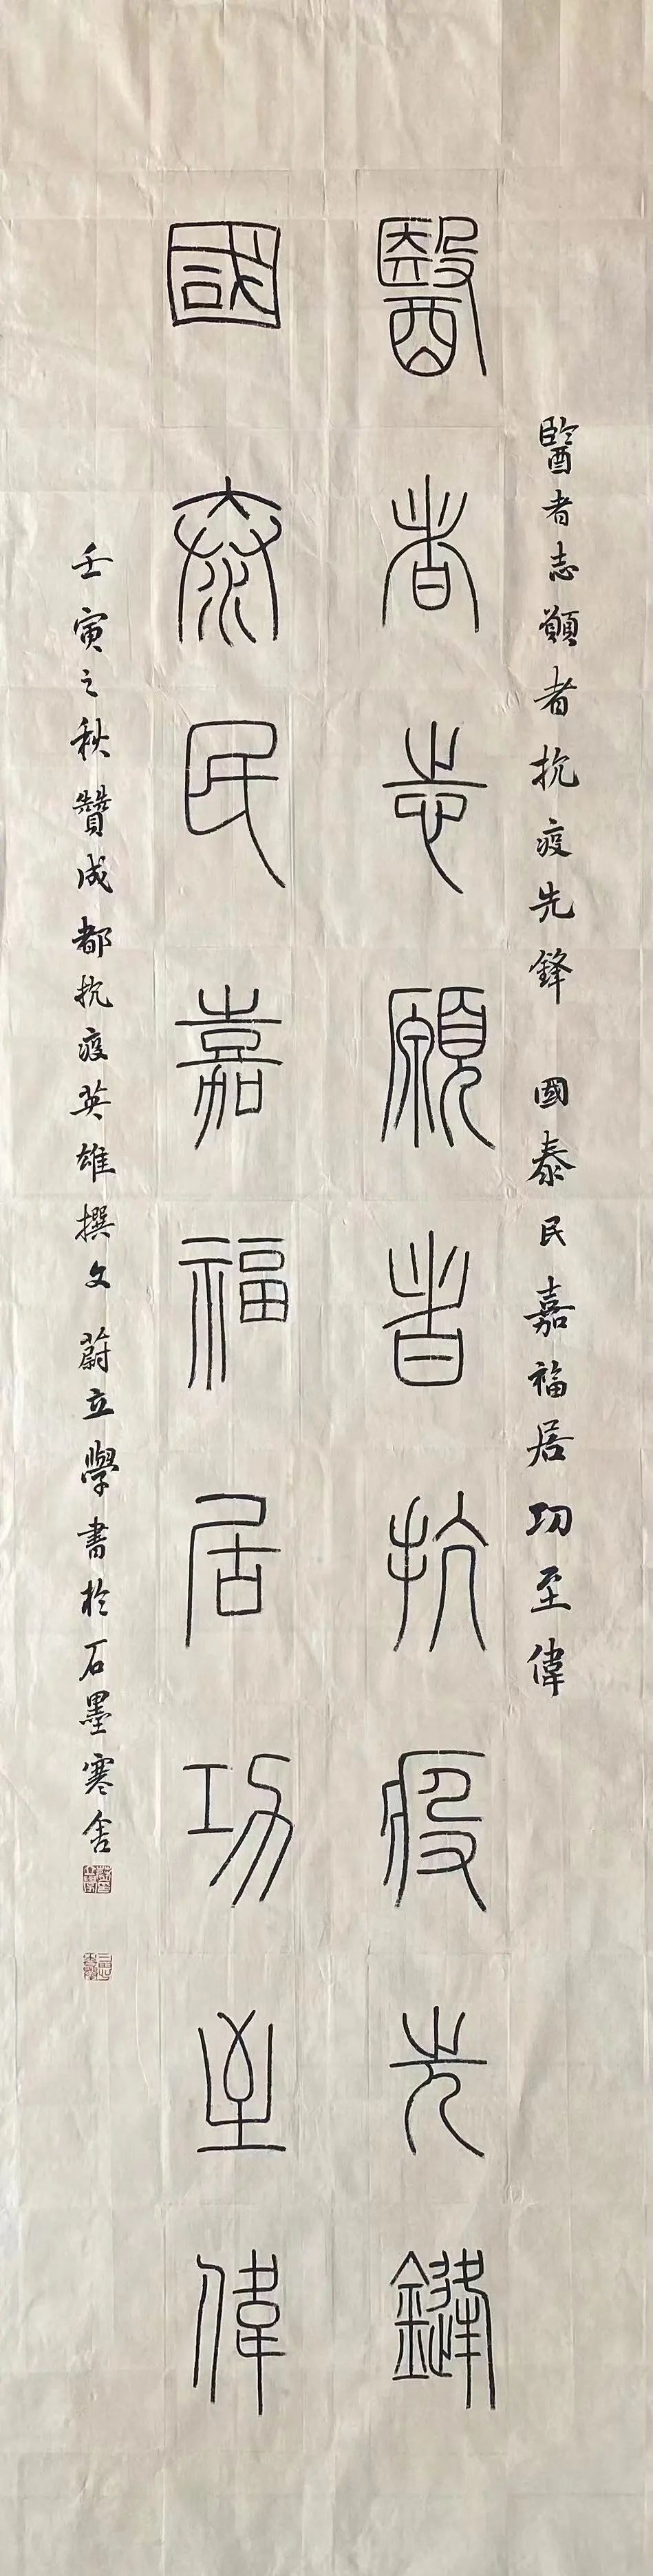 醫者志願者抗疫先鋒 國泰民嘉福居功至偉
醫者志願者抗疫先鋒
國泰民嘉福居功至偉
壬寅之秋贊成都抗疫英雄撰文 蔚立學書於石墨寒舍